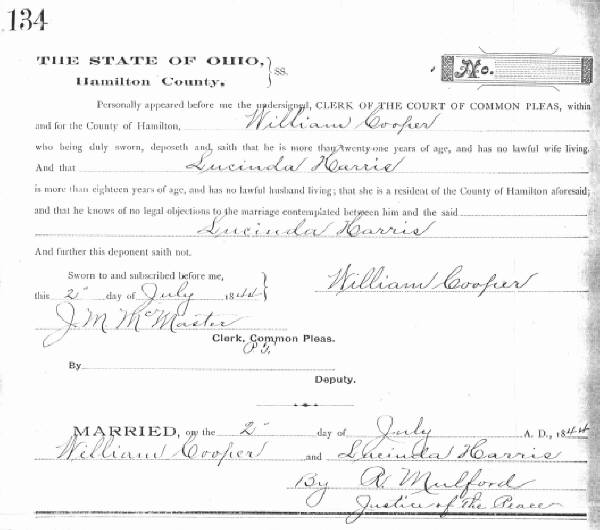 134
THE STATE OF OHIO, } ss.
Hamilton County, No.
Personally appeared before me the undersigned, CLERK OF THE COURT OF COMMON PLEAS, within
and for the County of Hamilton, William Cooper
who being duly sworn, deposeth and, saith that he is more than twenty-one years of age, and has no lawful wife living.
And that Lucinda Harris
is more than eighteen years of age, and has no lawful husband living; that she is a resident of the County of Hamilton aforesaid;
and that he knows of no legal objections to the marriage contemplated between him and the said
Lucinda Harris
And further this deponent saith not.
Sworn to and subscribed before me, } William Cooper
this 2" day of July 1844
J. M. McMaster
Clerk, Common Pleas.
By
Deputy.
MARRIED, on the 2" day of July A. D., 1844
William Cooper and Lucinda Harris
By R. Mulford
Justice of The Peace